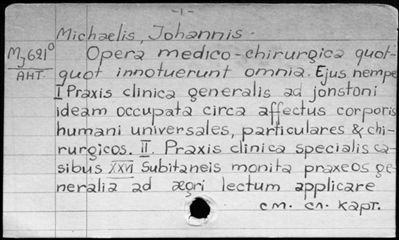 -1-
Michaelis, Johannis.
Mj621⁰
АНТ.
Opera medico-chirurgica quot-
quot innotuerunt omnia. Ejus nempe
I Praxis clinica generalis ad jonstoni
ideam occupata circa affectus corporis
humani universales, particulares & chi-
rurgicos. II. Praxis clinica specialis ca-
sibus XXVI subitaneis monita praxeos ge-
neralia ad ægri lectum applicare
см. сл. карт.